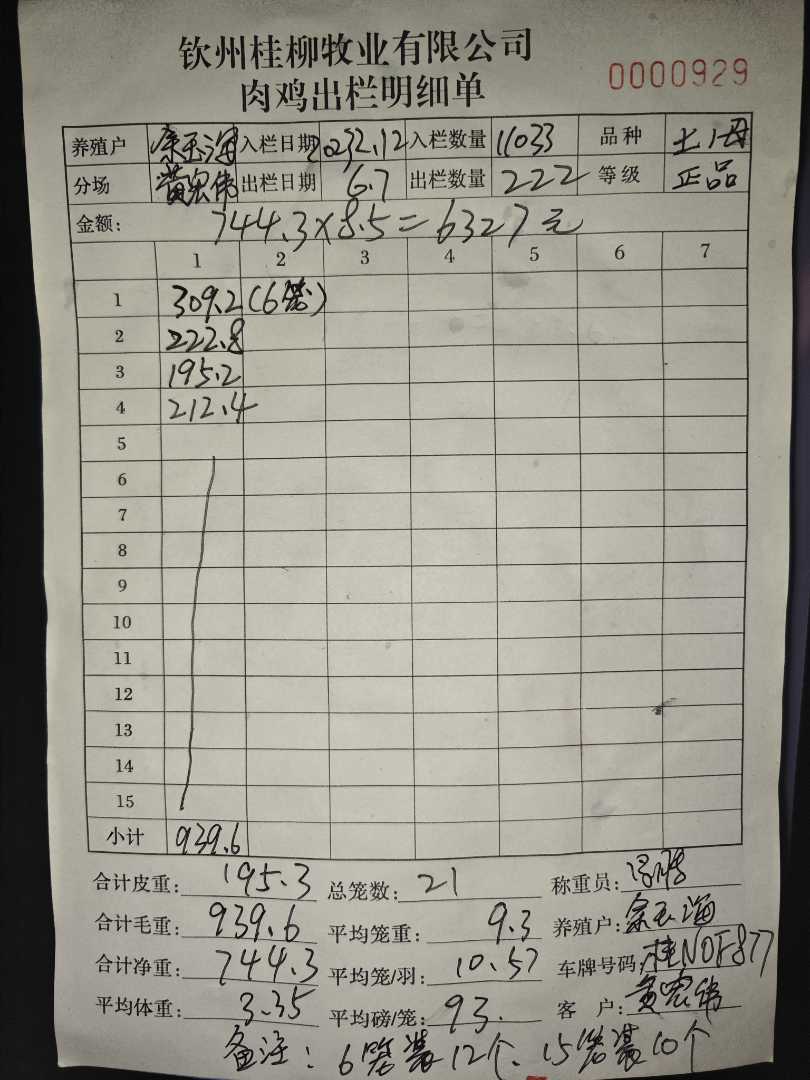 钦州桂柳牧业有限公司
肉鸡出栏明细单
0000929
养殖户 余玉海 入栏日期 2023.2.12 入栏数量 11033 品种 土2母
分场 黄宏伟 出栏日期 6.7 出栏数量 222 等级 正品
金额: 744.3×8.5=6327元
1 2 3 4 5 6 7
1 309.2(6笼)
2 222.8
3 195.2
4 212.4
5
6
7
8
9
10
11
12
13
14
15
小计 939.6
合计皮重: 195.3 总笼数: 21 称重员:
合计毛重: 939.6 平均笼重: 9.3 养殖户: 余玉海
合计净重: 744.3 平均笼/羽: 10.57 车牌号码: 桂N0F877
平均体重: 3.35 平均磅/笼: 93. 客户: 黄宏伟
备注: 6笼装12个、15笼装10个